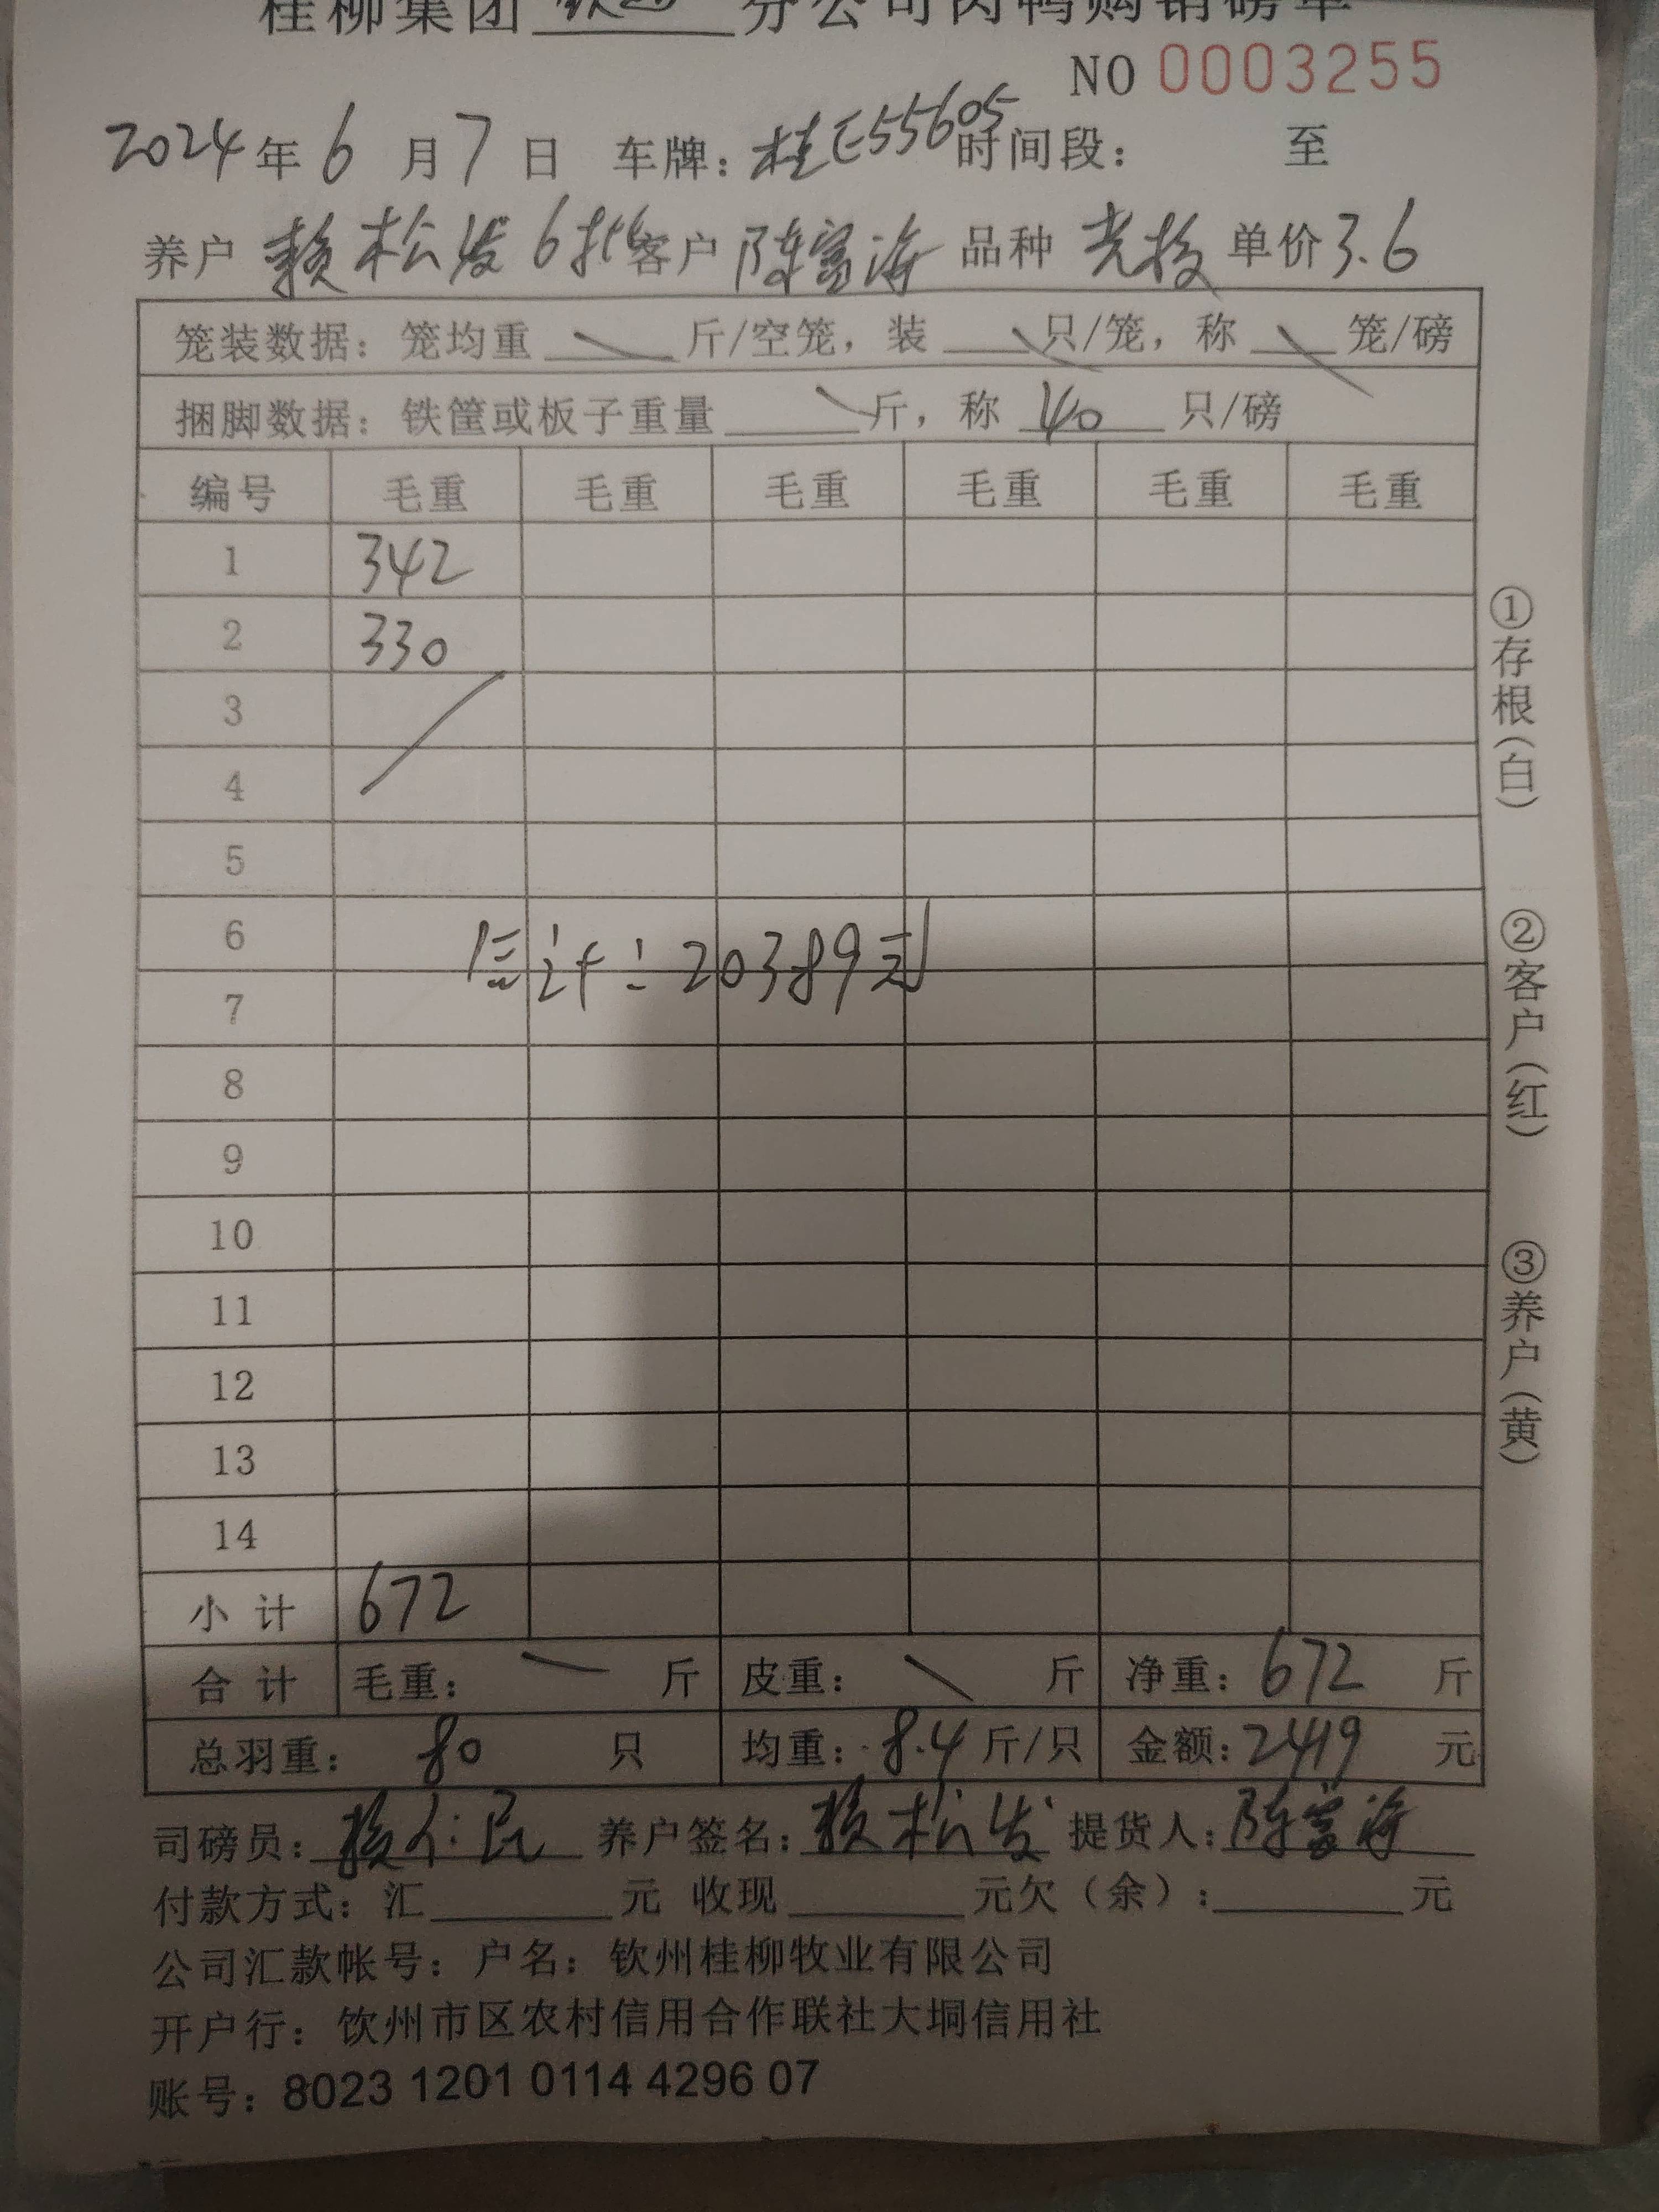 桂柳集团 分公司肉鸭购销磅单
NO 0003255
2024年6月7日 车牌：桂E55605 时间段： 至
养户 赖松发6批 客户 陈富海 品种 单价3.6
笼装数据：笼均重 斤/空笼，装 只/笼，称 笼/磅
捆脚数据：铁筐或板子重量 斤，称 40 只/磅
编号 毛重 毛重 毛重 毛重 毛重 毛重
1 342
2 330
3
4
5
6
信计：20389元
7
8
9
10
11
12
13
14
小计 672
合计 毛重： 斤 皮重： 斤 净重：672 斤
总羽重：80 只 均重：8.4 斤/只 金额：2419 元
司磅员：赖仁民 养户签名：赖松发 提货人：陈富海
付款方式：汇 元 收现 元欠（余）： 元
公司汇款帐号：户名：钦州桂柳牧业有限公司
开户行：钦州市区农村信用合作联社大垌信用社
账号：8023 1201 0114 4296 07
①存根（白）
②客户（红）
③养户（黄）